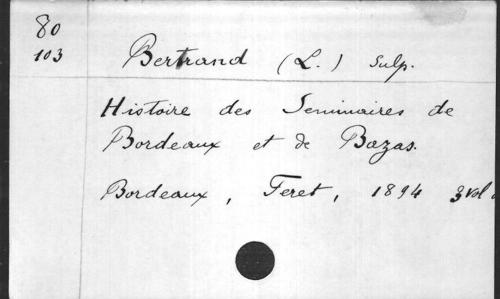 80
103
Bertrand (L.) Sulp.
Histoire des Seminaires de
Bordeaux et de Bazas.
Bordeaux, Feret, 1894 3 vol